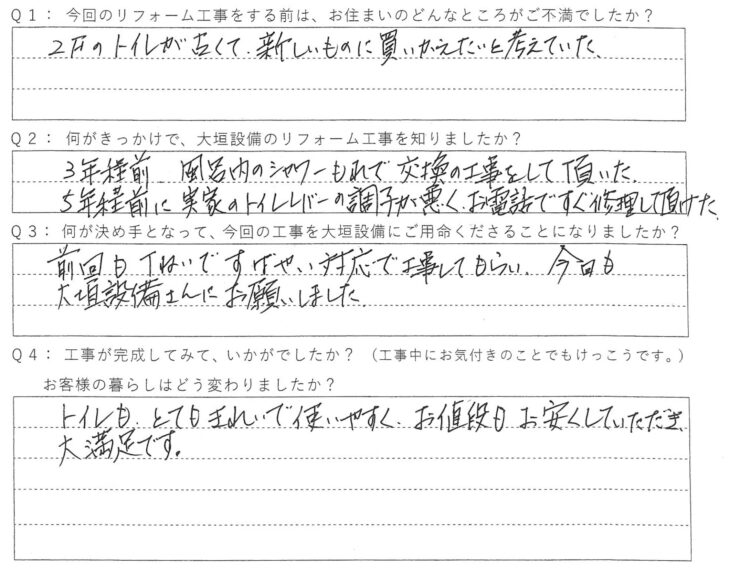 Q1： 今回のリフォーム工事をする前は、お住まいのどんなところがご不満でしたか？
2Fのトイレが古くて、新しいものに買いかえたいと考えていた。
Q2： 何がきっかけで、大垣設備のリフォーム工事を知りましたか？
3年程前、風呂内のシャワーもれで交換の工事をして頂いた。
5年程前に実家のトイレレバーの調子が悪く、お電話ですぐ修理して頂けた。
Q3： 何が決め手となって、今回の工事を大垣設備にご用命くださることになりましたか？
前回もていねいですばやい対応で工事してもらい、今回も
大垣設備さんにお願いしました。
Q4： 工事が完成してみて、いかがでしたか？ （工事中にお気付きのことでもけっこうです。）
お客様の暮らしはどう変わりましたか？
トイレも、とてもきれいで使いやすく、お値段もお安くしていただき、
大満足です。